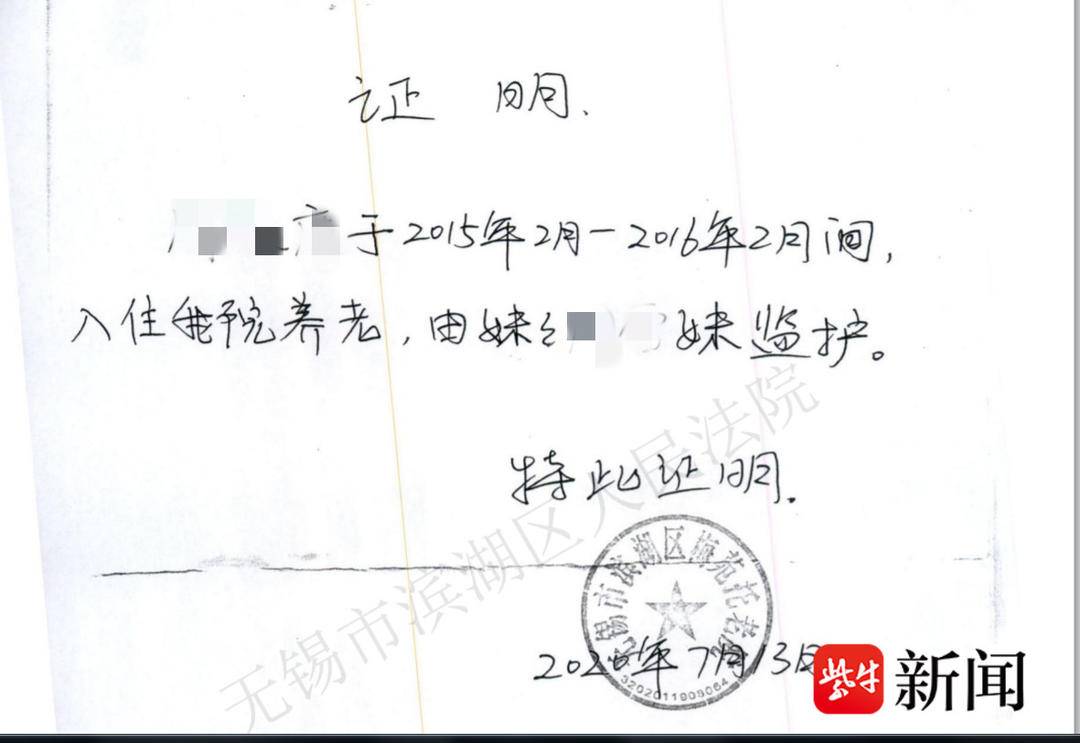 证 明.
于2015年2月-2016年2月间,
入住我院养老,由妹 妹监护。
特此证明.
无锡市滨湖区梅苑托老院
2020年7月13日
3202011909064
无锡市滨湖区人民法院
紫牛新闻